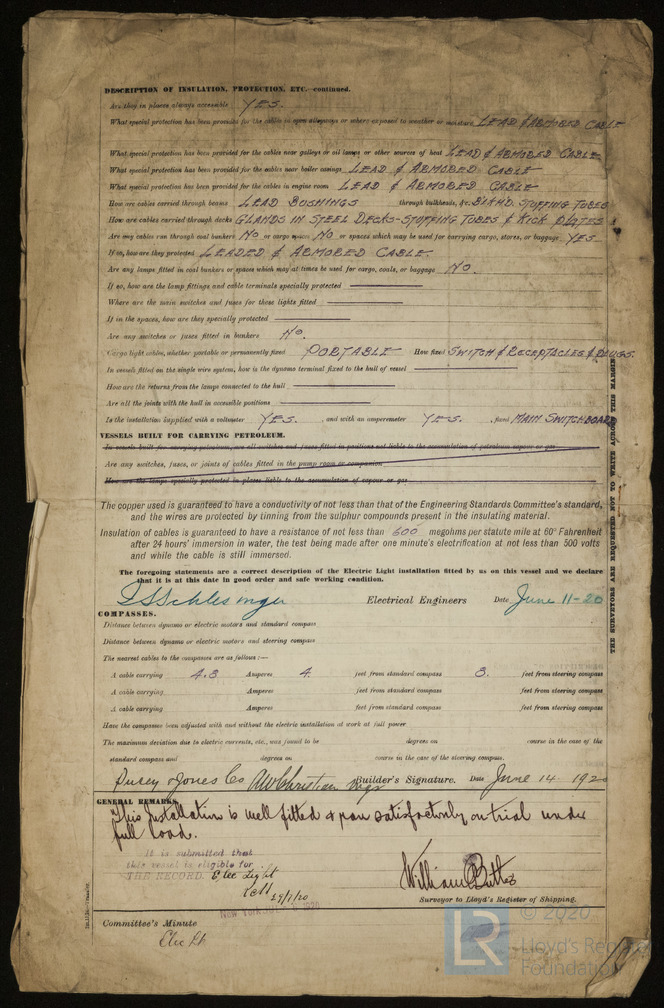 DESCRIPTION OF INSULATION, PROTECTION, ETC.—continued.
Are they in places always accessible YES.
What special protection has been provided for the cables in open alleyways or where exposed to weather or moisture LEAD & ARMORED CABLE
What special protection has been provided for the cables near galleys or oil lamps or other sources of heat LEAD & ARMORED CABLE.
What special protection has been provided for the cables near boiler casings LEAD & ARMORED CABLE
What special protection has been provided for the cables in engine room LEAD & ARMORED CABLE
How are cables carried through beams LEAD BUSHINGS through bulkheads, &c. BLKHD. STUFFING TUBES
How are cables carried through decks GLANDS IN STEEL DECKS-STUFFING TUBES & KICK PLATES
Are any cables run through coal bunkers No or cargo spaces No or spaces which may be used for carrying cargo, stores, or baggage YES
If so, how are they protected LEADED & ARMORED CABLE.
Are any lamps fitted in coal bunkers or spaces which may at times be used for cargo, coals, or baggage NO.
If so, how are the lamp fittings and cable terminals specially protected
Where are the main switches and fuses for these lights fitted
If in the spaces, how are they specially protected
Are any switches or fuses fitted in bunkers No.
Cargo light cables, whether portable or permanently fixed PORTABLE How fixed SWITCH & RECEPTACLES & PLUGS.
In vessels fitted on the single wire system, how is the dynamo terminal fixed to the hull of vessel
How are the returns from the lamps connected to the hull
Are all the joints with the hull in accessible positions
Is the installation supplied with a voltmeter YES. , and with an amperemeter YES. , fixed MAIN SWITCHBOARD
VESSELS BUILT FOR CARRYING PETROLEUM.
In vessels built for carrying petroleum, are all switches and fuses fitted in positions not liable to the accumulation of petroleum vapour or gas
Are any switches, fuses, or joints of cables fitted in the pump room or companion
How are the lamps specially protected in places liable to the accumulation of vapour or gas
The copper used is guaranteed to have a conductivity of not less than that of the Engineering Standards Committee's standard,
and the wires are protected by tinning from the sulphur compounds present in the insulating material.
Insulation of cables is guaranteed to have a resistance of not less than 600 megohms per statute mile at 60° Fahrenheit
after 24 hours' immersion in water, the test being made after one minute's electrification at not less than 500 volts
and while the cable is still immersed.
The foregoing statements are a correct description of the Electric Light installation fitted by us on this vessel and we declare
that it is at this date in good order and safe working condition.
Schlesinger Electrical Engineers Date June 11-20
COMPASSES.
Distance between dynamo or electric motors and standard compass
Distance between dynamo or electric motors and steering compass
The nearest cables to the compasses are as follows:—
A cable carrying 4.8 Amperes 4. feet from standard compass 8. feet from steering compass
A cable carrying Amperes feet from standard compass feet from steering compass
A cable carrying Amperes feet from standard compass feet from steering compass
Have the compasses been adjusted with and without the electric installation at work at full power
The maximum deviation due to electric currents, etc., was found to be degrees on course in the case of the
standard compass and degrees on course in the case of the steering compass.
Pusey & Jones Co AW Christian Builder's Signature. Date June 14 1920
GENERAL REMARKS.
This Installation is well fitted & ran satisfactorily on trial under
full load.
It is submitted that
this vessel is eligible for
THE RECORD. Elec Light
29/7/20
William Butler
Surveyor to Lloyd's Register of Shipping.
New York
Committee's Minute
Elec Lt
THE SURVEYORS ARE REQUESTED NOT TO WRITE ACROSS THIS MARGIN
© 2020
LR
Lloyd's Register
Foundation